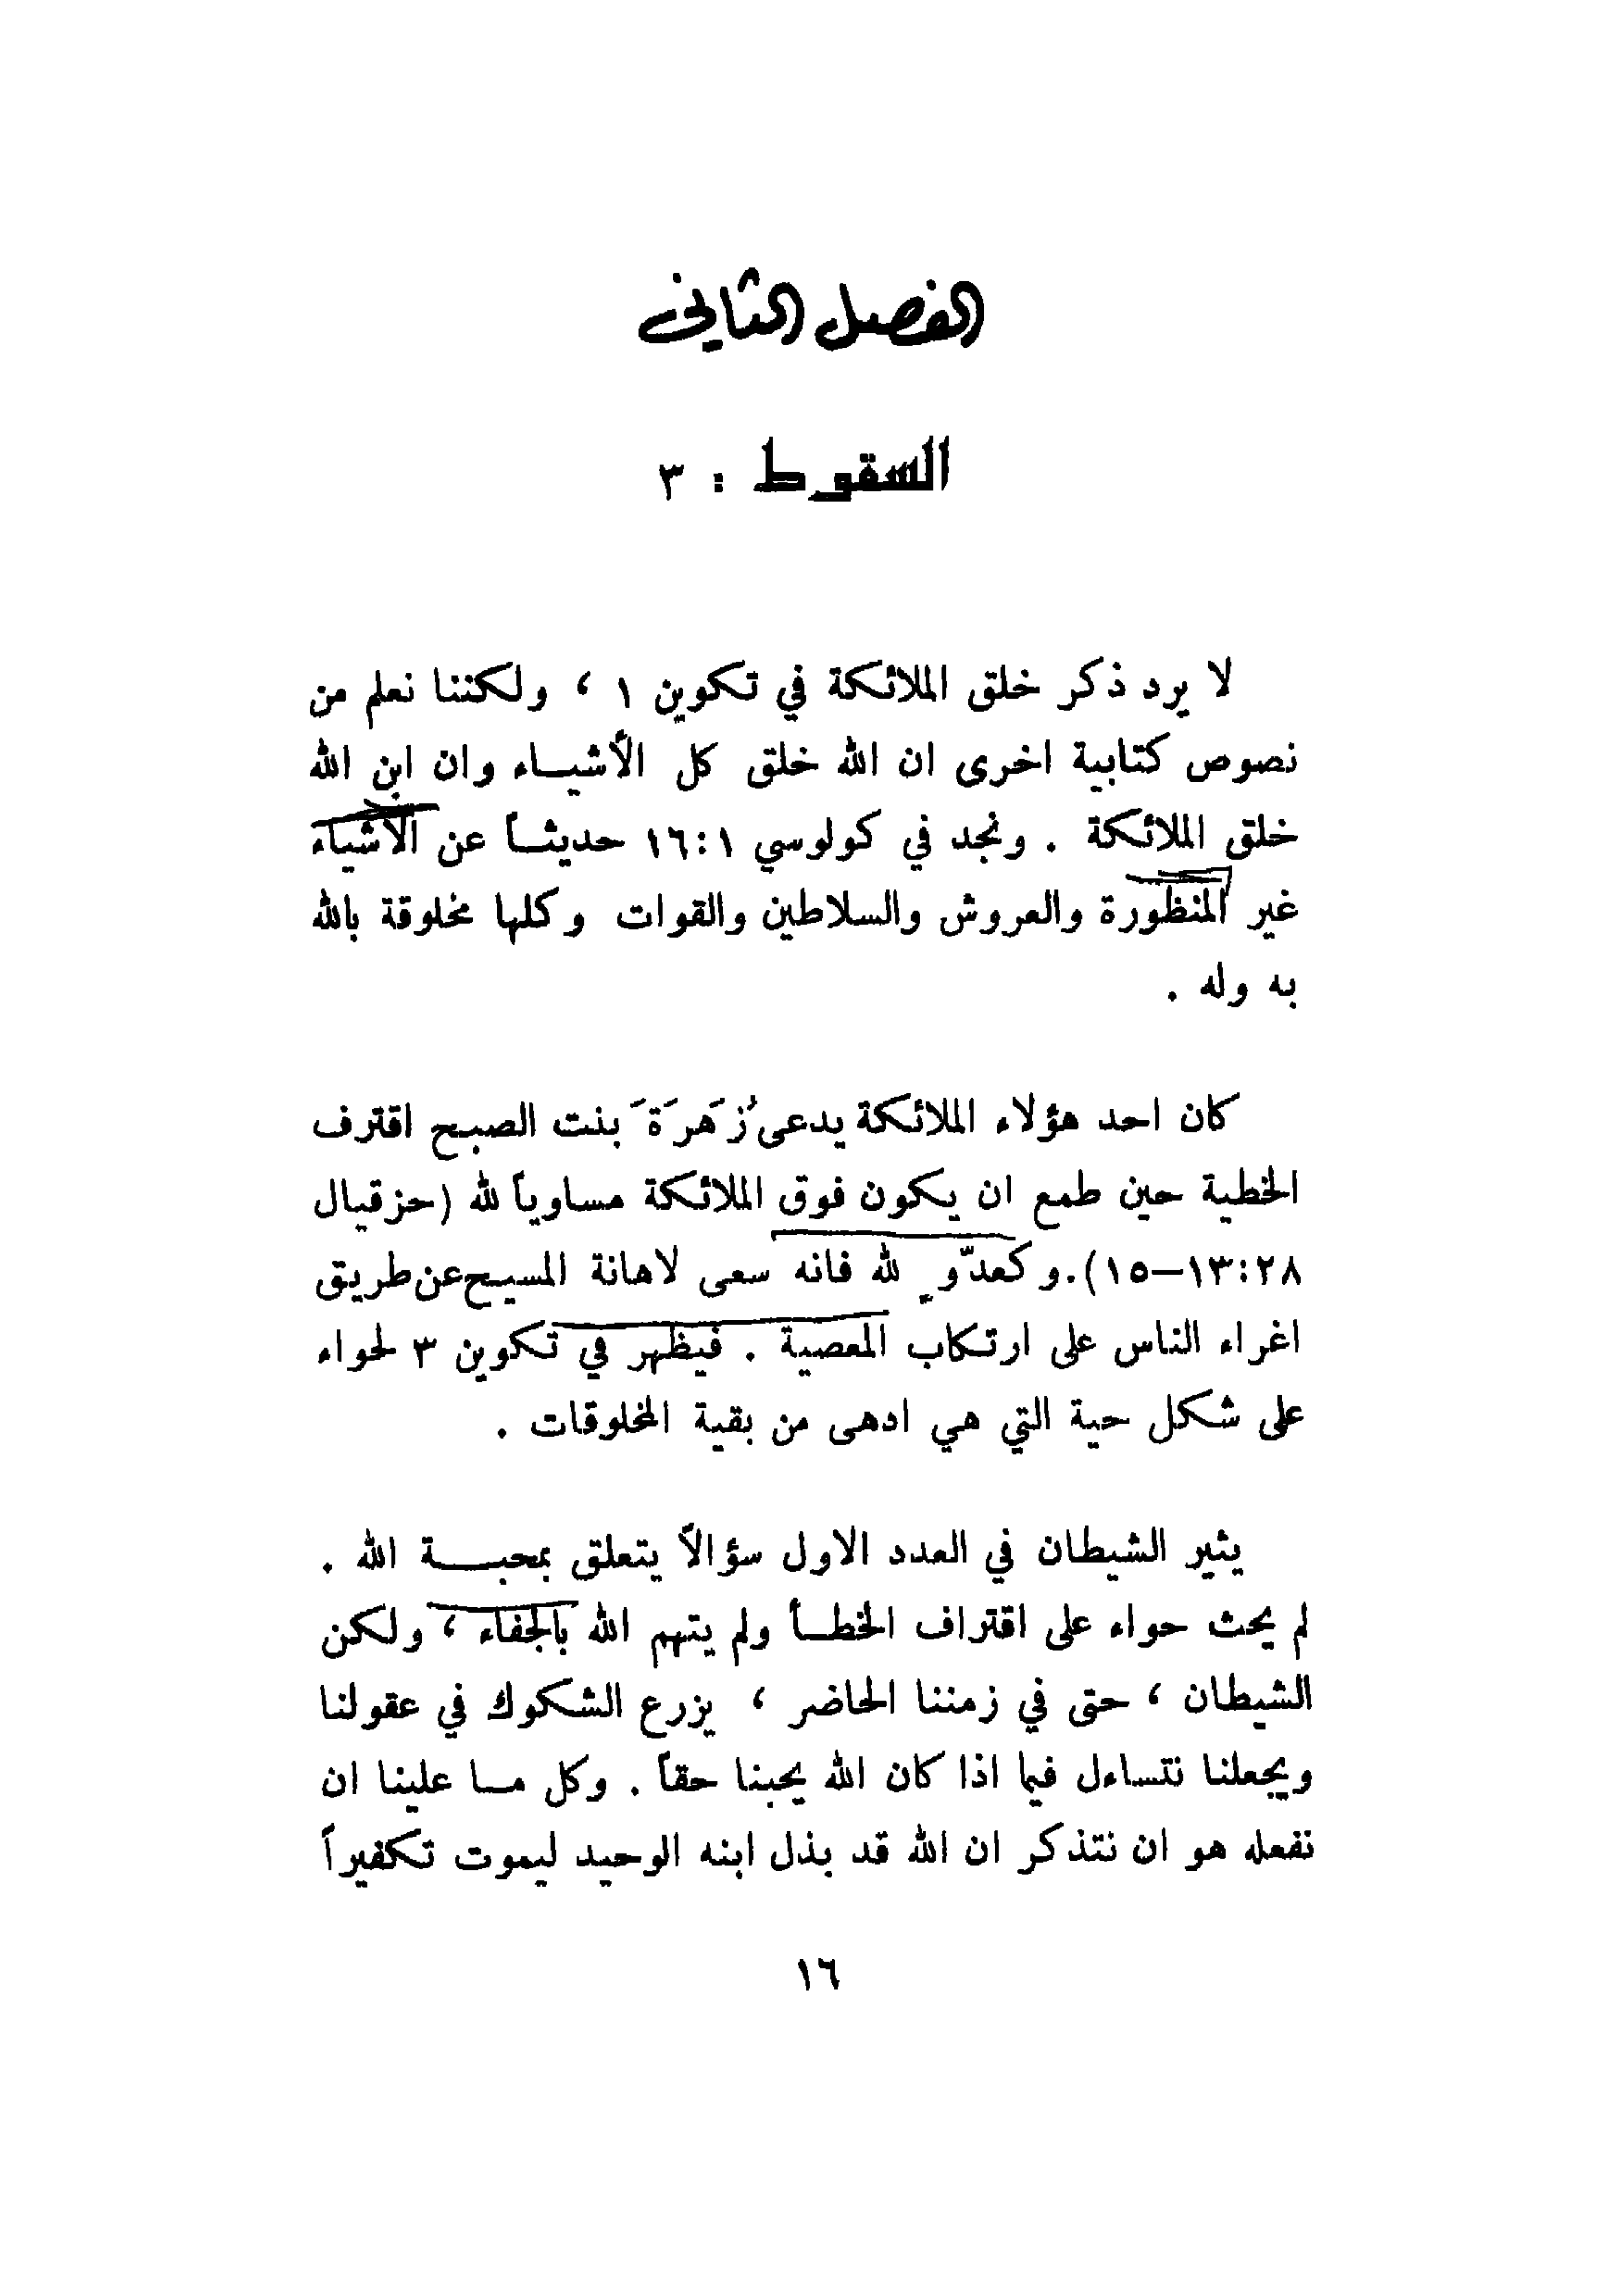 الفصل الثاني
السقوط : ٣
لا يرد ذكر خلق الملائكة في تكوين ١ ، ولكننا نعلم من
نصوص كتابية اخرى ان الله خلق كل الأشياء وان ابن الله
خلق الملائكة . ونجد في كولوسي ١:١٦ حديثاً عن الأشياء
غير المنظورة والعروش والسلاطين والقوات وكلها مخلوقة بالله
به وله .
كان احد هؤلاء الملائكة يدعى زُهَرَةَ بنت الصبح اقترف
الخطية حين طمع ان يكون فوق الملائكة مساوياً لله (حزقيال
٢٨:١٣–١٥). وكعدّوٍ لله فانه سعى لاهانة المسيح عن طريق
اغراء الناس على ارتكاب المعصية . فيظهر في تكوين ٣ لحواء
على شكل حية التي هي ادهى من بقية المخلوقات .
يثير الشيطان في العدد الاول سؤالاً يتعلق بمحبة الله .
لم يحث حواء على اقتراف الخطأ ولم يتهم الله بالجفاء ، ولكن
الشيطان ، حتى في زمننا الحاضر ، يزرع الشكوك في عقولنا
ويجعلنا نتساءل فيما اذا كان الله يحبنا حقاً . وكل ما علينا ان
نفعله هو ان نتذكر ان الله قد بذل ابنه الوحيد ليموت تكفيراً
١٦